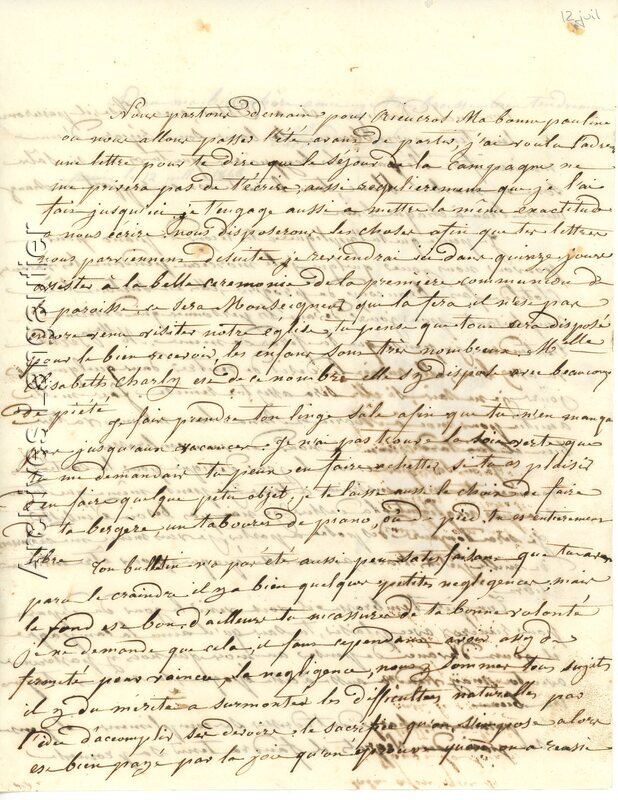 12 juil
Nous partons demain pour Rieucros Ma bonne pauline
ou nous allons passer l'été, avant de partir, j'ai voulu t'adres
une lettre pour te dire que le séjour de la campagne ne
me privera pas de t'écrire, aussi regulierement que je l'ai
fait jusqu'ici, je t'engage aussi a mettre la même exactitude
a nous écrire. Nous disposerons les choses afin que tes lettres
nous parviennent de suite, je reviendrai ici dans quinze jours
assister à la belle ceremonie de la premiere communion de
la paroisse, ce sera Monseigneur qui la fera il n'est pas
encore venu visiter notre église, tu pense que tout sera disposé
pour le bien recevoir, les enfans sont très nombreux. Melle
Elisabeth Charly est de ce nombre elle s'y dispose avec beaucoup
de piété
je fais prendre ton linge sâle afin que tu n'en manque
pas jusqu'aux vacances. Je n'ai pas trouvé la soie verte que
tu me demandais tu peux en faire acheter si tu as plaisir
d'en faire quelque petit objet, je te laisse aussi le choix de faire
la bergere, un tabouret de piano, ou de pied tu es entierement
libre
Ton bulletin n'a pas été aussi peu satisfaisant que tu avais
paru le craindre il y a bien quelques petites negligences, mais
le fond est bon d'ailleurs tu m'assures de ta bonne volonté
je ne demande que cela, il faut cependant avoir assez de
fermeté pour vaincre la negligence, nous y sommes tous sujets
il y a du mérite a surmonter les difficultés naturelles par
l'idée d'accomplir ses devoirs, le sacrifice qu'on s'impose alors
est bien payé par la joie qu'on éprouve quand on a reussi
Archives L-engaulier